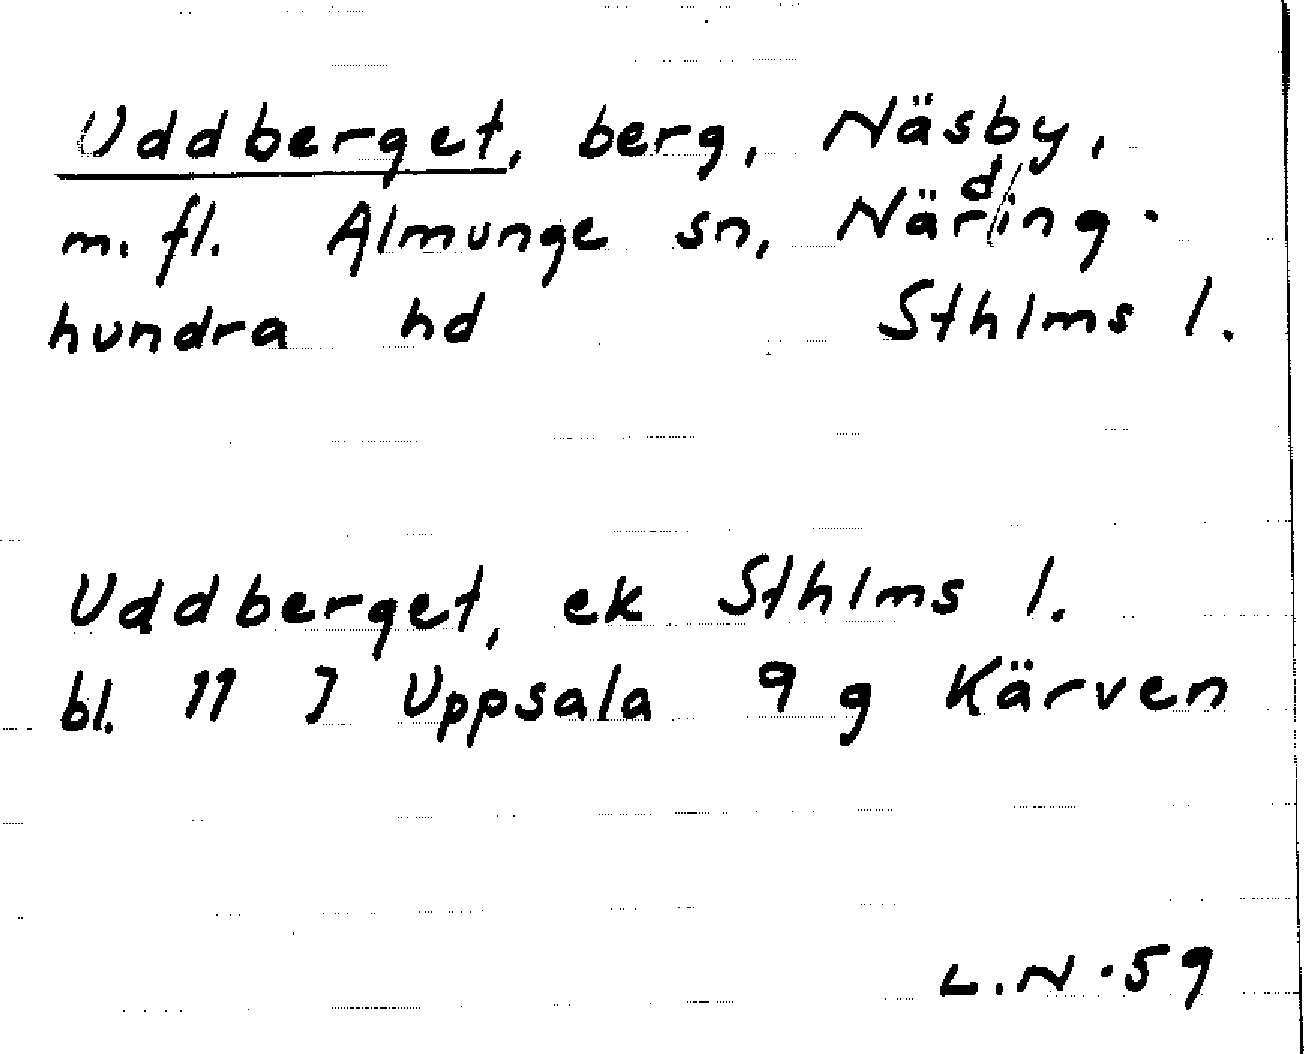 Uddberget, berg, Näsby,
m. fl. Almunge sn, Närding-
hundra hd Sthlms l.
Uddberget, ek Sthlms l.
bl. 11 I Uppsala 9 g Kärven
L.N. 59